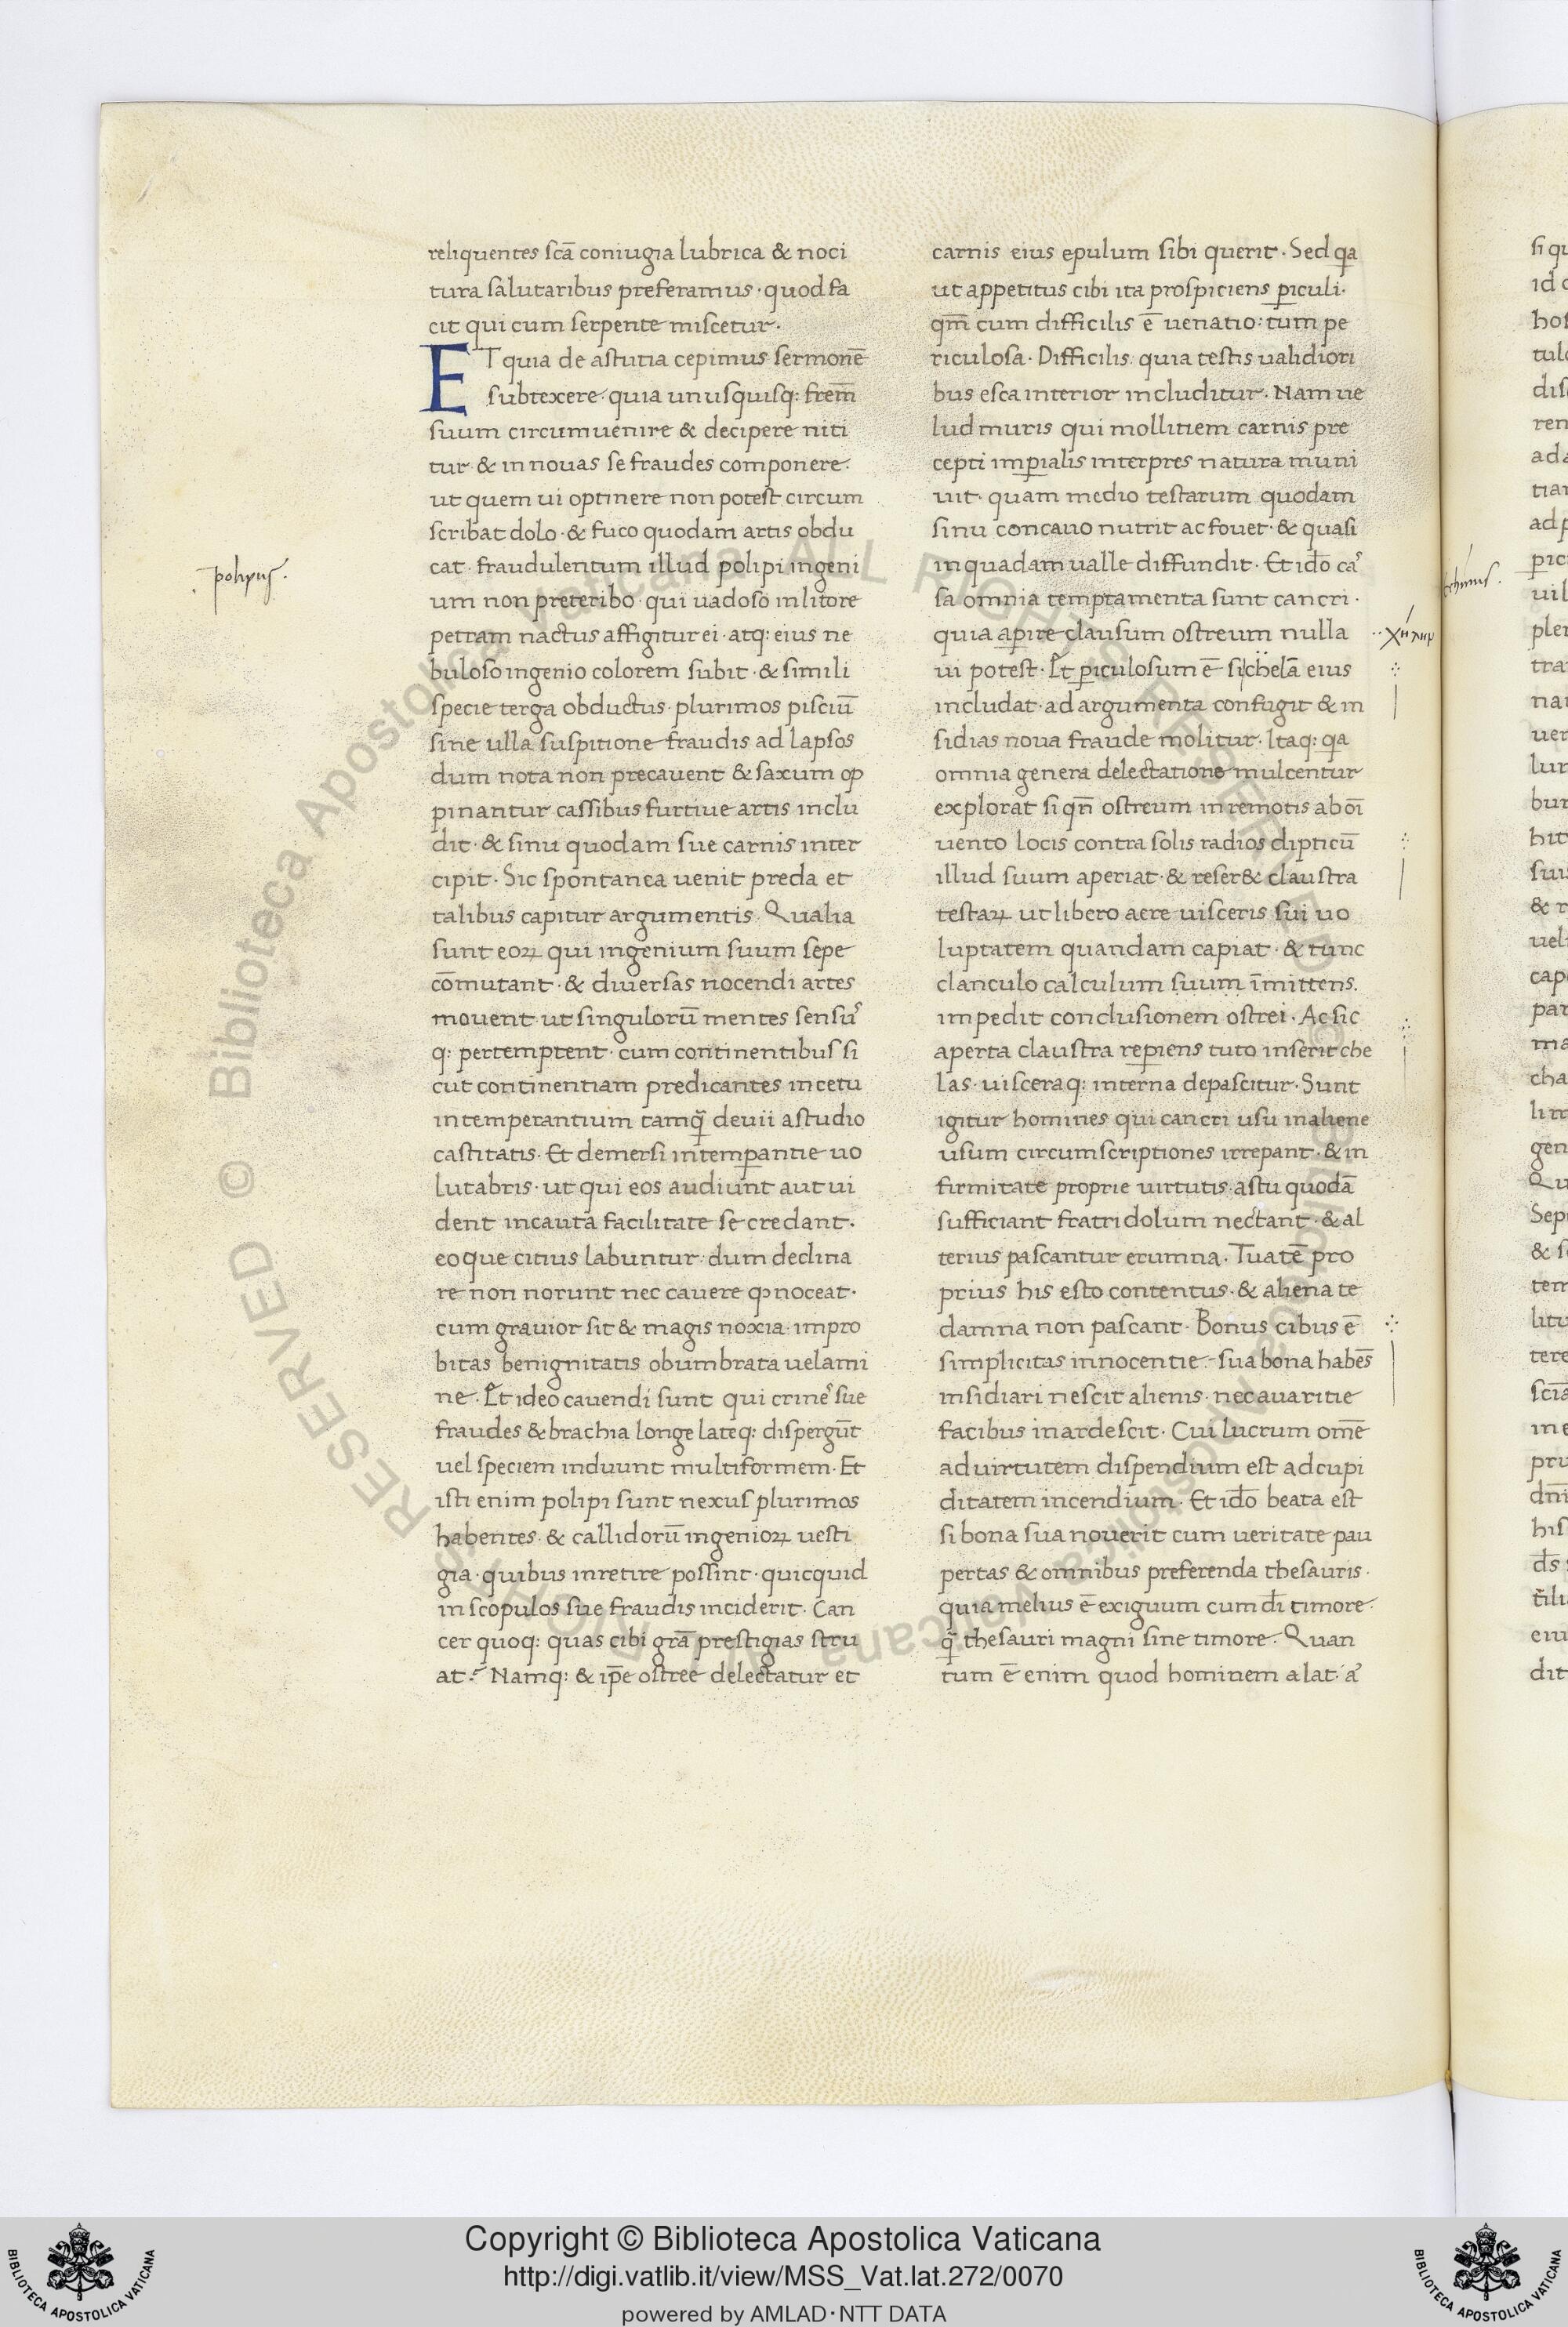 reliquentes scā coniugia lubrica & noci
tura salutaribus preferamus · quod fa
cit qui cum serpente miscetur ·
ET quia de astutia cepimus sermonē
subtexere · quia unusquisq: frem̄
suum circumuenire & decipere niti
tur · & in nouas se fraudes componere ·
ut quem ui optinere non potest circum
scribat dolo · & fuco quodam artis obdu
cat · fraudulentum illud polipi ingeni
um non preteribo · qui uadoso in litore
petram nactus affigitur ei · atq: eius ne
buloso ingenio colorem subit · & simili
specie terga obductus · plurimos pisciū
sine ulla suspitione fraudis ad lapsos
dum nota non precauent & saxum op
pinantur cassibus furtiue artis inclu
dit · & sinu quodam sue carnis inter
cipit · Sic spontanea uenit preda et
talibus capitur argumentis · Qualia
sunt eoꝝ qui ingenium suum sepe
cōmutant · & diuersas nocendi artes
mouent ut singulorū mentes sensuˀ
q: pertemptent · cum continentibus si
cut continentiam predicantes in cetu
intemperantium tamq̄ deuii a studio
castitatis · Et demersi intemꝑantie uo
lutabris · ut qui eos audiunt aut ui
dent incauta facilitate se credant ·
eoque citius labuntur · dum declina
re non norunt nec cauere ꝙ noceat ·
cum grauior sit & magis noxia impro
bitas benignitatis obumbrata uelami
ne · Et ideo cauendi sunt qui crineˀ sue
fraudes & brachia longe lateq: dispergūt
uel speciem induunt multiformem · Et
isti enim polipi sunt nexus plurimos
habentes · & callidorū ingenioꝝ uesti
gia · quibus inretire possint · quicquid
in scopulos sue fraudis inciderit · Can
cer quoq: quas cibi grā prestigias stru
at · Namq: & ip̄e ostree delectatur et
polipus ·
carnis eius epulum sibi querit · Sed qa
ut appetitus cibi ita prospiciens ꝑiculi ·
qm̄ cum difficilis ē uenatio : tum pe
riculosa · Difficilis quia testis ualidiori
bus esca interior includitur · Nam ue
lud muris qui mollitiem carnis pre
cepti imꝑialis interpres natura muni
uit · quam medio testarum quodam
sinu concauo nutrit ac fouet · & quasi
in quadam ualle diffundit · Et ido caˀ
sa omnia temptamenta sunt cancri ·
quia aꝑire clausum ostreum nulla
ui potest · Et ꝑiculosum ē si chelā eius
includat · ad argumenta confugit & in
sidias noua fraude molitur · Itaq: qa
omnia genera delectatione mulcentur
explorat si qn̄ ostreum in remotis ab oī
uento locis contra solis radios dipticū
illud suum aperiat · & reser& claustra
testaꝝ ut libero aere uisceris sui uo
luptatem quandam capiat · & tunc
clanculo calculum suum īmittens.
impedit conclusionem ostrei · Ac sic
aperta claustra reꝑiens tuto inserit che
las · uisceraq: interna depascitur · Sunt
igitur homines qui cancri usu in aliene
usum circumscriptiones irrepant · & in
firmitate proprie uirtutis astu quodā
sufficiant fratri dolum nectant · & al
terius pascantur erumna · Tu atē pro
prius his esto contentus · & aliena te
damna non pascant · Bonus cibus ē
simplicitas innocentie · sua bona habēs
insidiari nescit alienis · nec auaritie
facibus inardescit · Cui lucrum omē
ad uirtutem dispendium est ad cupi
ditatem incendium · Et ido beata est
si bona sua nouerit cum ueritate pau
pertas & omnibus preferenda thesauris ·
quia melius ē exiguum cum di timore ·
q̄ thesauri magni sine timore · Quan
tum ē enim quod hominem alat · aˀ
χήλην
Copyright © Biblioteca Apostolica Vaticana
http://digi.vatlib.it/view/MSS_Vat.lat.272/0070
powered by AMLAD·NTT DATA
BIBLIOTECA APOSTOLICA VATICANA
BIBLIOTECA APOSTOLICA VATICANA